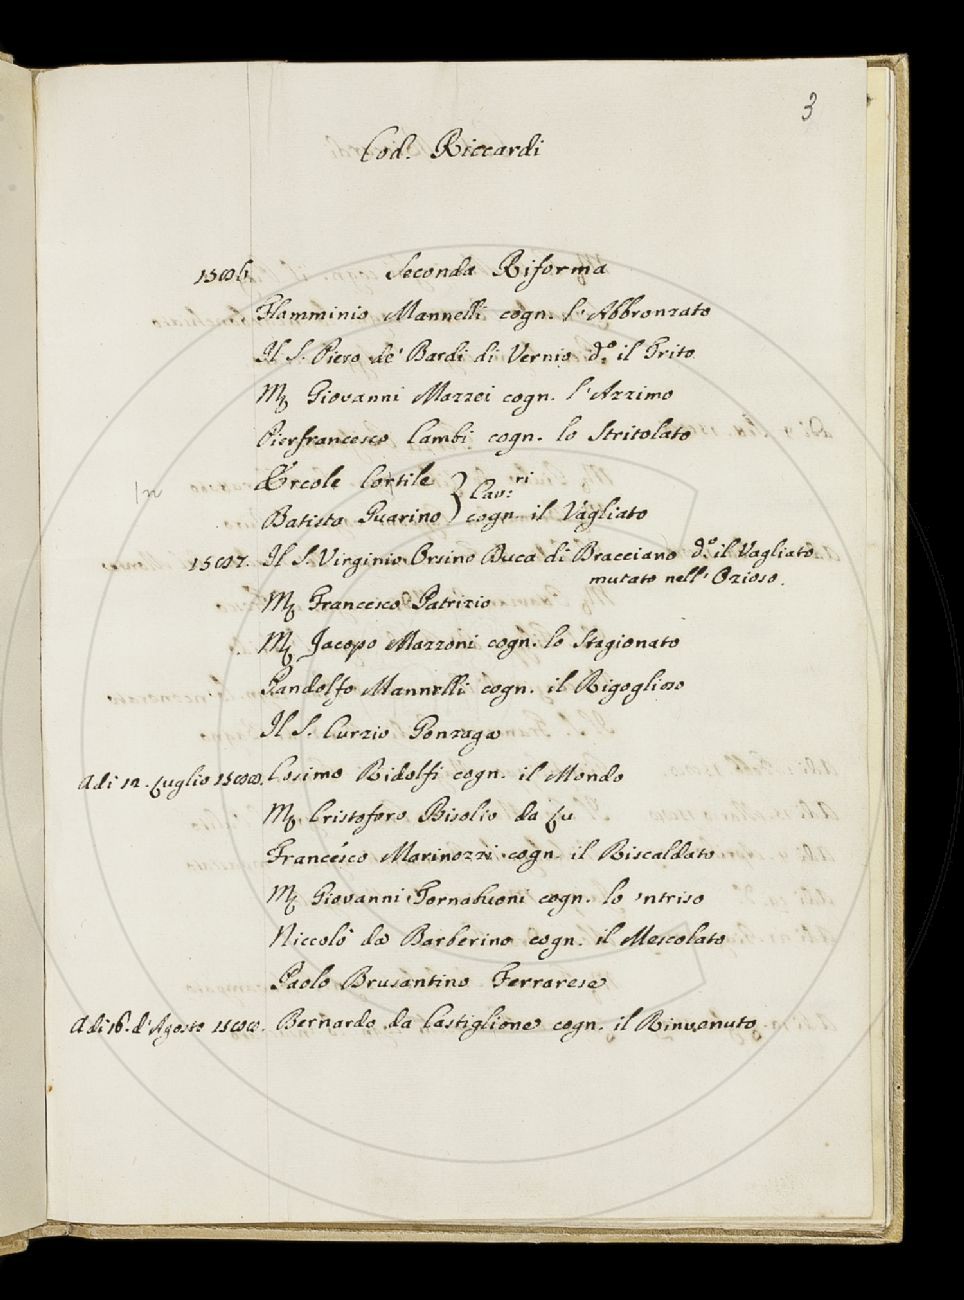 3
Cod. Riccardi
1586 Seconda Riforma
Flamminio Mannelli cogn. l'Abbronzato
Il S. Piero de' Bardi di Vernio d.º il Trito
Mʃ Giovanni Mazzei cogn. l'Azzimo
Pierfrancesco Cambi cogn. lo Stritolato
Ercole Cortile } Cav:ri
Batista Guarino } cogn. il Vagliato
1587. Il S. Virginio Orsino Duca di Bracciano d.º il Vagliato
mutato nell' Ozioso.
Mʃ Francesco Patrizio
Mʃ Jacopo Mazzoni cogn. lo Stagionato
Pandolfo Mannelli cogn. il Rigoglioso
Il S. Curzio Gonzaga
Adi 12. Luglio 1588. Cosimo Ridolfi cogn. il Mondo
Mʃ Cristoforo Bisolio da Lu
Francesco Marinozzi cogn. il Riscaldato
Mʃ Giovanni Tornabuoni cogn. lo 'ntriso
Niccolò da Barberino cogn. il Mescolato
Paolo Brusantino Ferrarese
Adi 16. d'Agosto 1588. Bernardo da Castiglione cogn. il Rinvenuto